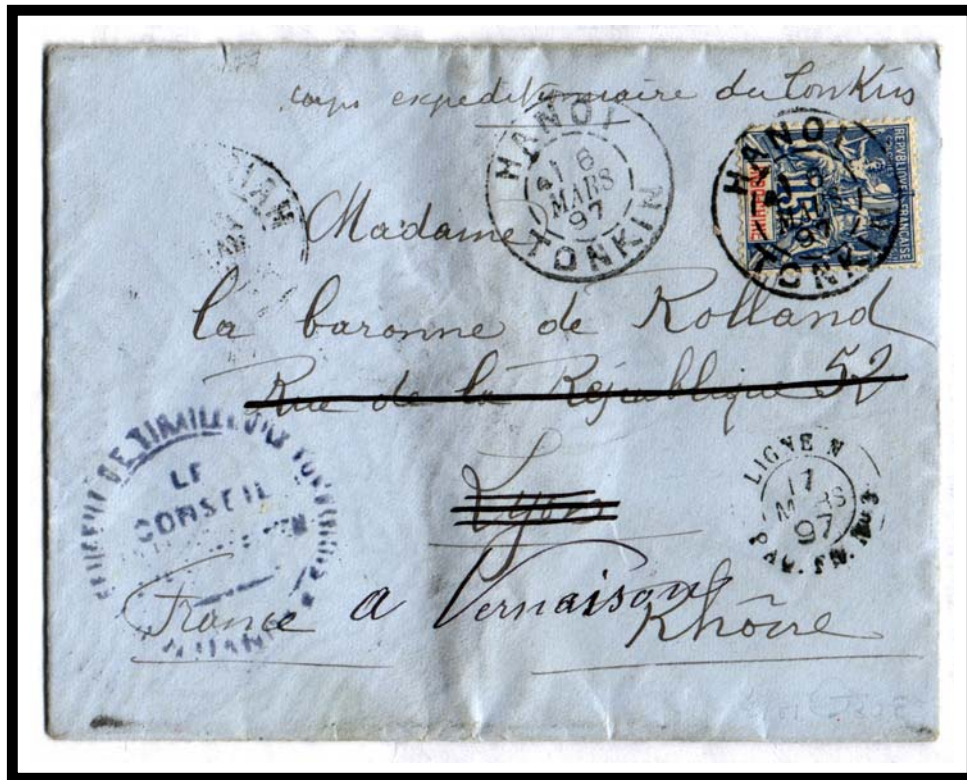 corps expeditionnaire du Tonkin
HANOI
6
MARS
97
TONKIN
HANOI
6
97
TONKIN
REPVBLIQVE FRANÇAISE
COLONIES
15
INDO-CHINE
Madame
la baronne de Rolland
Rue de la République 52
Lyon
LIGNE N
11
MARS
97
PAQ. FR. No 3
DE TIRAILLEURS TONKINOIS
LE
CONSEIL
France a Vernaison
Rhône